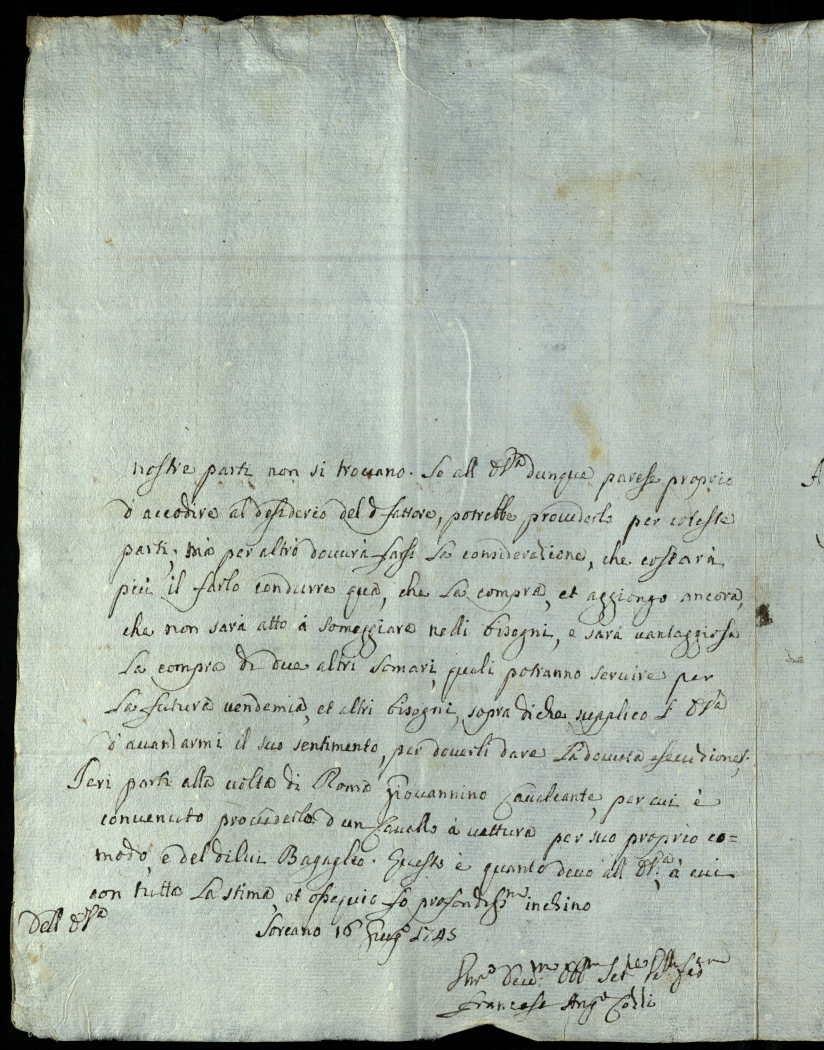 nostre parti non si trovano. Se all' E.V.ª dunque paresse proprio
d'accodire al desiderio del d.º fattore, potrebbe provederlo per coteste
parti; mà per altro dovurà farsi la considerazione, che costarà
più il farlo condurre quà, che la compra, et aggiongo ancora,
che non sarà atto à someggiare nelli bisogni, e sarà vantaggiosa
la compra di due altri somari, quali potranno servire per
la futura vendemia, et altri bisogni, sopra di che supplico l'E.V.ª
d'avanzarmi il suo sentimento, per doverli dare la dovuta esecuzione.
Ieri partì alla volta di Roma Giovannino Cavalcante, per cui è
convenuto provederlo d'un Cavallo à vettura per suo proprio co=
modo, e del di lui Bagaglio. Questo è quanto devo all' E.V.ª, à cui
con tutta la stima, et ossequio fò profondiss.mo inchino
Dell' E.V.ª
Soreano 16 Giug.º 1745
Um.º Dev.mo Obb.mo Ser.re
Francesc Ang.º